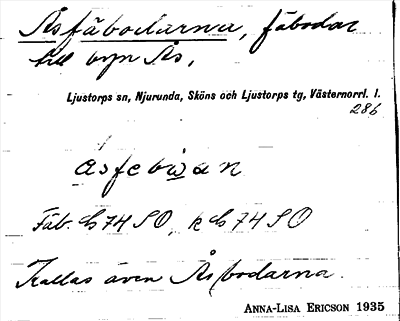 Åsfäbodarna, fäbodar
till byn Ås,
Ljustorps sn, Njurunda, Sköns och Ljustorps tg, Västernorrl. l.
286
åsfebωan
Fäb. G 74 SO, k G 74 SO
Kallas även Åsbodarna.
ANNA-LISA ERICSON 1935